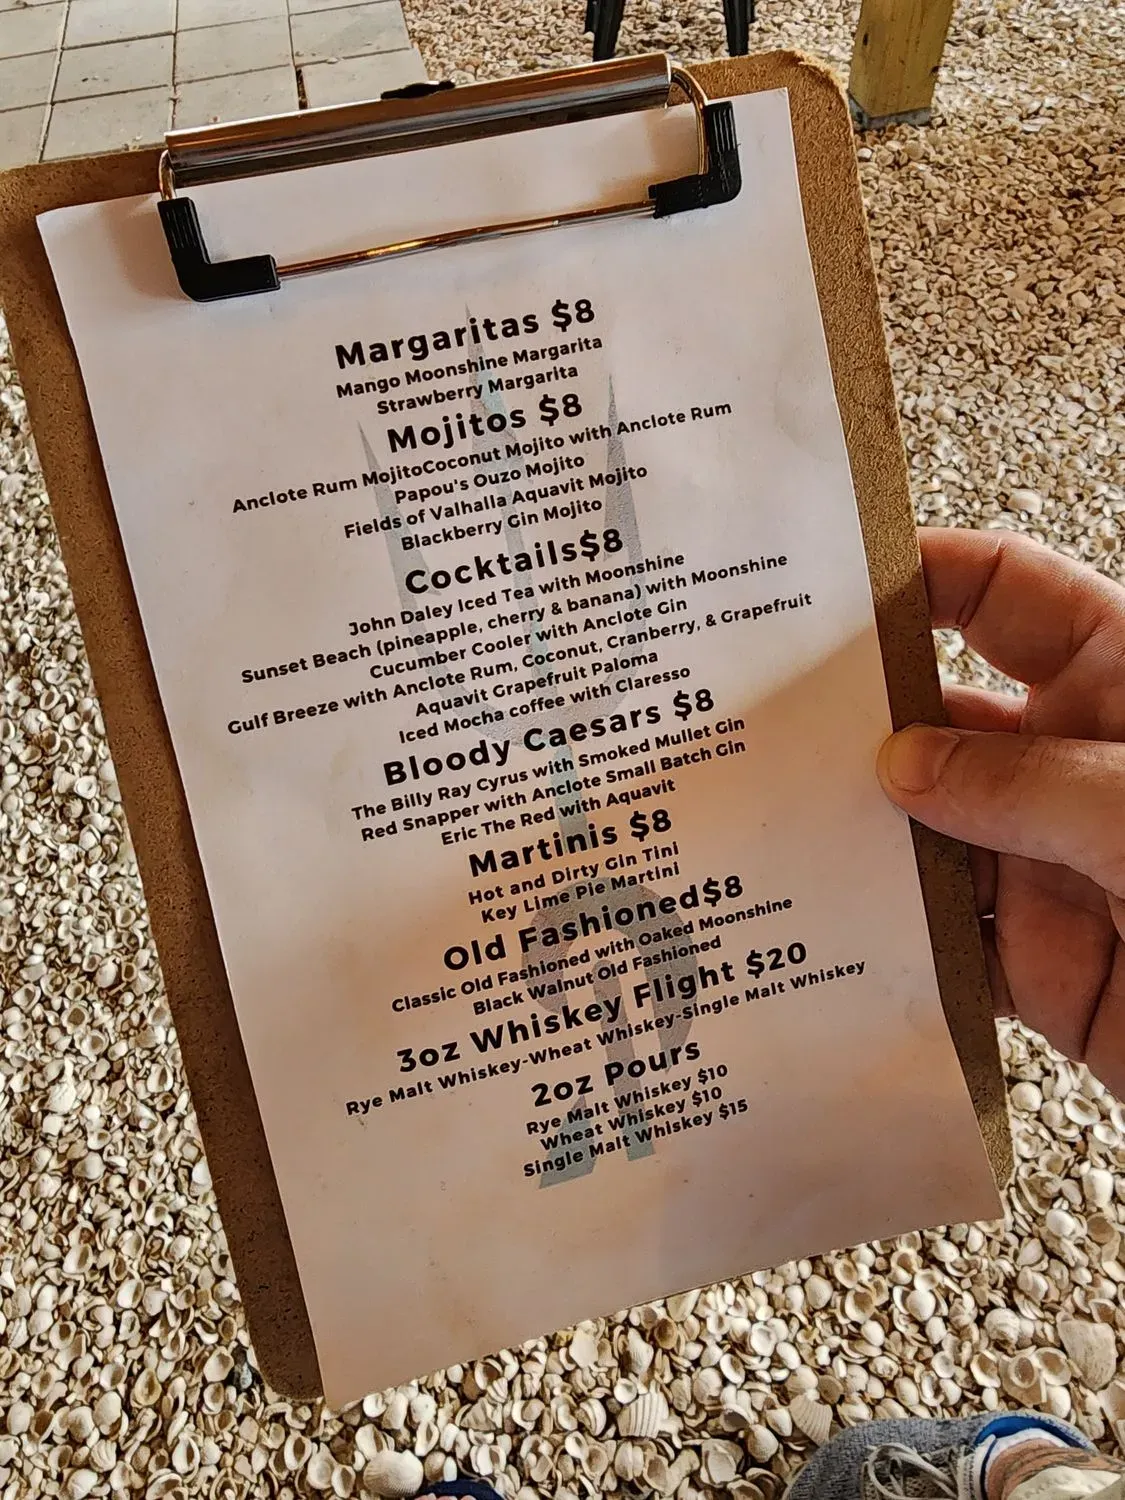 Margaritas $8
Mango Moonshine Margarita
Strawberry Margarita
Mojitos $8
Anclote Rum MojitoCoconut Mojito with Anclote Rum
Papou's Ouzo Mojito
Fields of Valhalla Aquavit Mojito
Blackberry Gin Mojito
Cocktails$8
John Daley Iced Tea with Moonshine
Sunset Beach (pineapple, cherry & banana) with Moonshine
Cucumber Cooler with Anclote Gin
Gulf Breeze with Anclote Rum, Coconut, Cranberry, & Grapefruit
Aquavit Grapefruit Paloma
Iced Mocha coffee with Claresso
Bloody Caesars $8
The Billy Ray Cyrus with Smoked Mullet Gin
Red Snapper with Anclote Small Batch Gin
Eric The Red with Aquavit
Martinis $8
Hot and Dirty Gin Tini
Key Lime Pie Martini
Old Fashioned$8
Classic Old Fashioned with Oaked Moonshine
Black Walnut Old Fashioned
3oz Whiskey Flight $20
Rye Malt Whiskey-Wheat Whiskey-Single Malt Whiskey
2oz Pours
Rye Malt Whiskey $10
Wheat Whiskey $10
Single Malt Whiskey $15